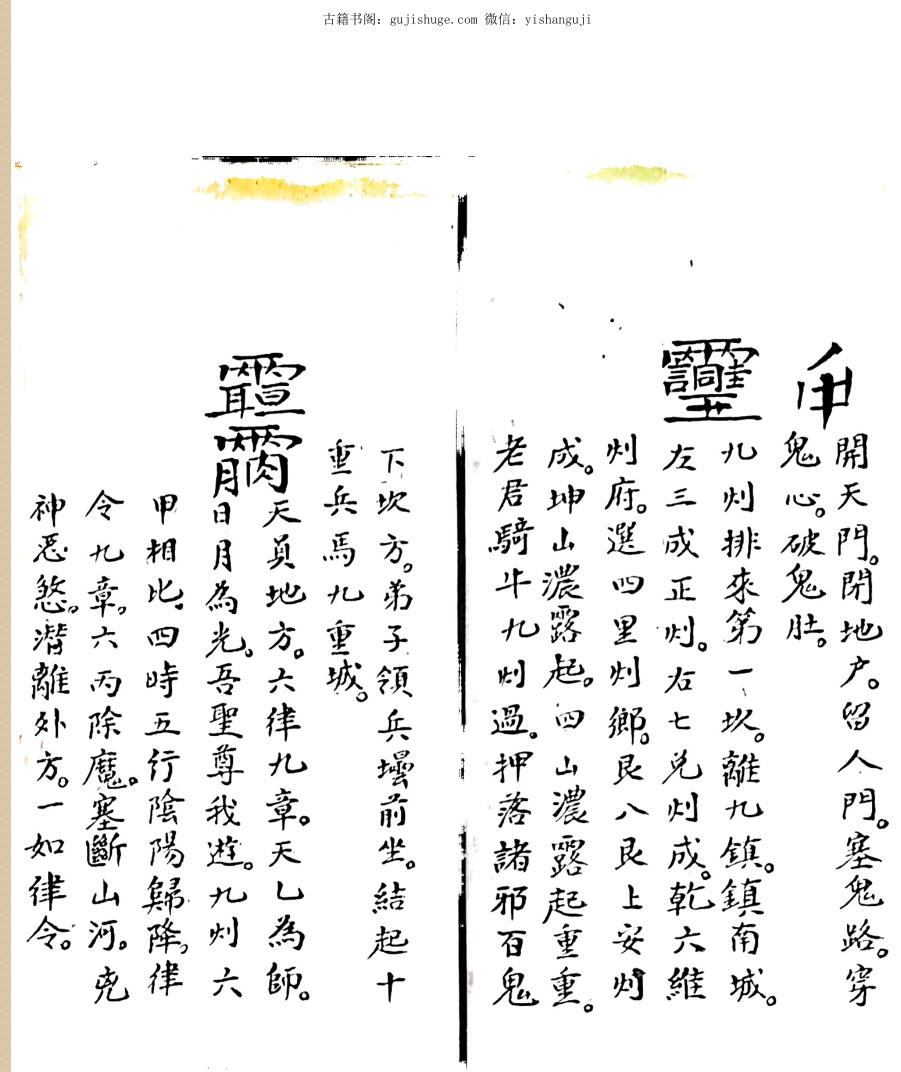 古籍书阁：gujishuge.com 微信：yishanguji
開天門。閉地户。留人門。塞鬼路。穿
鬼心。破鬼肚。
九州排來第一坎。離九鎮。鎮南城。
左三成正州。右七兑州成。乾六維
州府。選四里州鄉。艮八艮上安州
成。坤山濃露起。四山濃露起重重。
老君騎牛九州過。押落諸邪百鬼
下坎方。弟子領兵壇前坐。結起十
重兵馬九重城。
天員地方。六律九章。天乙為師。
日月為光。吾聖尊我遊。九州六
甲相比。四時五行陰陽歸降。律
令九章。六丙除魔。塞斷山河。兇
神惡煞。潛離外方。一如律令。